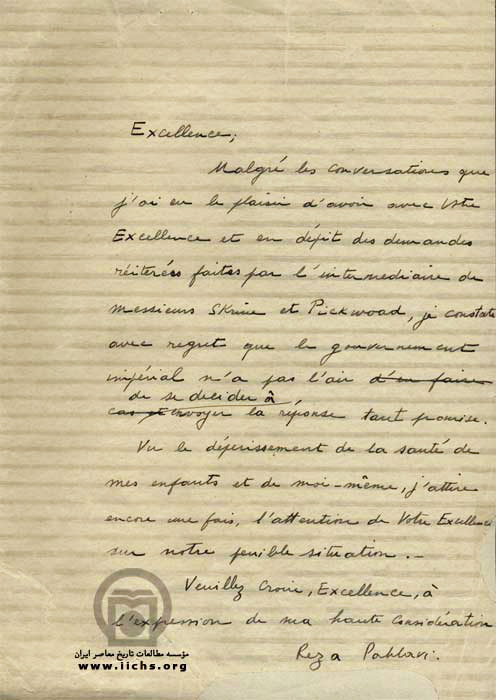 Excellence,
Malgré les conversations que
j'ai eu le plaisir d'avoir avec Votre
Excellence et en dépit des demandes
réiterées faites par l'intermediaire de
messieurs Skrine et Pickwood, je constate
avec regret que le gouvernement
impérial n'a pas l'air d'en faire
de se decider à
cas et envoyer la réponse tant promise.
Vu le dépérissement de la santé de
mes enfants et de moi-même, j'attire
encore une fois, l'attention de Votre Excellence
sur notre penible situation.-
Veuillez Croire, Excellence, à
l'expression de ma haute Considération
Reza Pahlavi.
مؤسسه مطالعات تاریخ معاصر ایران
www.iichs.org